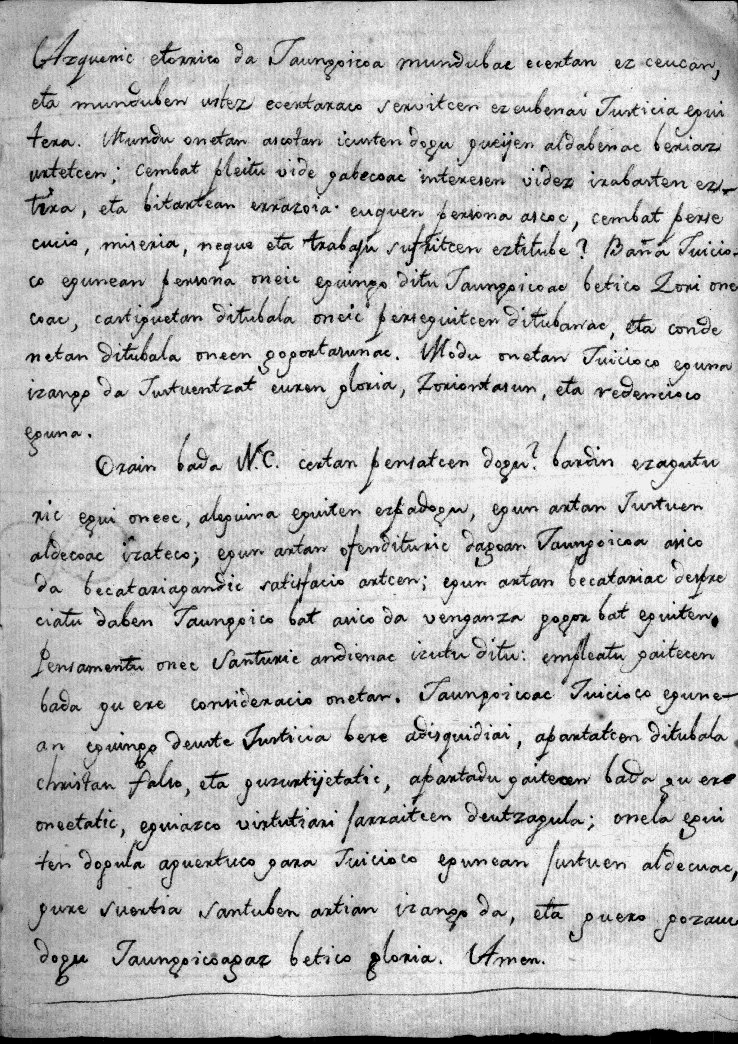 Azquenic etorrico da Jaungoicoa mundubac ecertan ez ceucan,
eta munduben ustez ecertaraco servitcen ezcubenai Justicia egui
tera. Mundu onetan ascotan icusten dogu gueijen aldabenac beriaz
urtetcen; cembat pleitu vide gabecoac interesen videz irabasten ez-
tira, eta bitartean errazoia euquen persona ascoc, cembat perse
cucio, miseria, neque eta trabaju sufritcen eztitube? Baña Juicio-
co egunean persona oneic eguingo ditu Jaungoicoac betico Zori one
coac, castiguetan ditubala oneic perseguitcen ditubanac, eta conde
netan ditubala oneen gogortasunac. Modu onetan Juicioco eguna
izango da Justuentzat euren gloria, Zoriontasun, eta redencioco
eguna.
Orain bada N.C. certan pensatcen dogu? bardin ezagutu
ric egui oneec, aleguina eguiten ezpadogu, egun artan Justuen
aldecoac izateco; egun artan ofendituric dagoan Jaungoicoa asico
da becatariagandic satisfacio artcen; egun artan becatariac despre
ciatu daben Jaungoico bat asico da venganza gogor bat eguiten.
Pensamentu onec Santuric andienac izutu ditu: empleatu gaitecen
bada gu ere consideracio onetan. Jaungoicoac Juicioco egune-
an eguingo deuste Justicia bere adisquidiai, apartatcen ditubala
christau falso, eta guzurtijetatic, apartadu gaitecen bada gu ere
oneetatic, eguiazco virtutiari jarraitcen deutzagula; onela egui
ten dogula aguertuco gara Juicioco egunean Justuen aldecuac,
gure suertia santuben artian izango da, eta guero gozauco
dogu Jaungoicoagaz betico gloria. Amen.